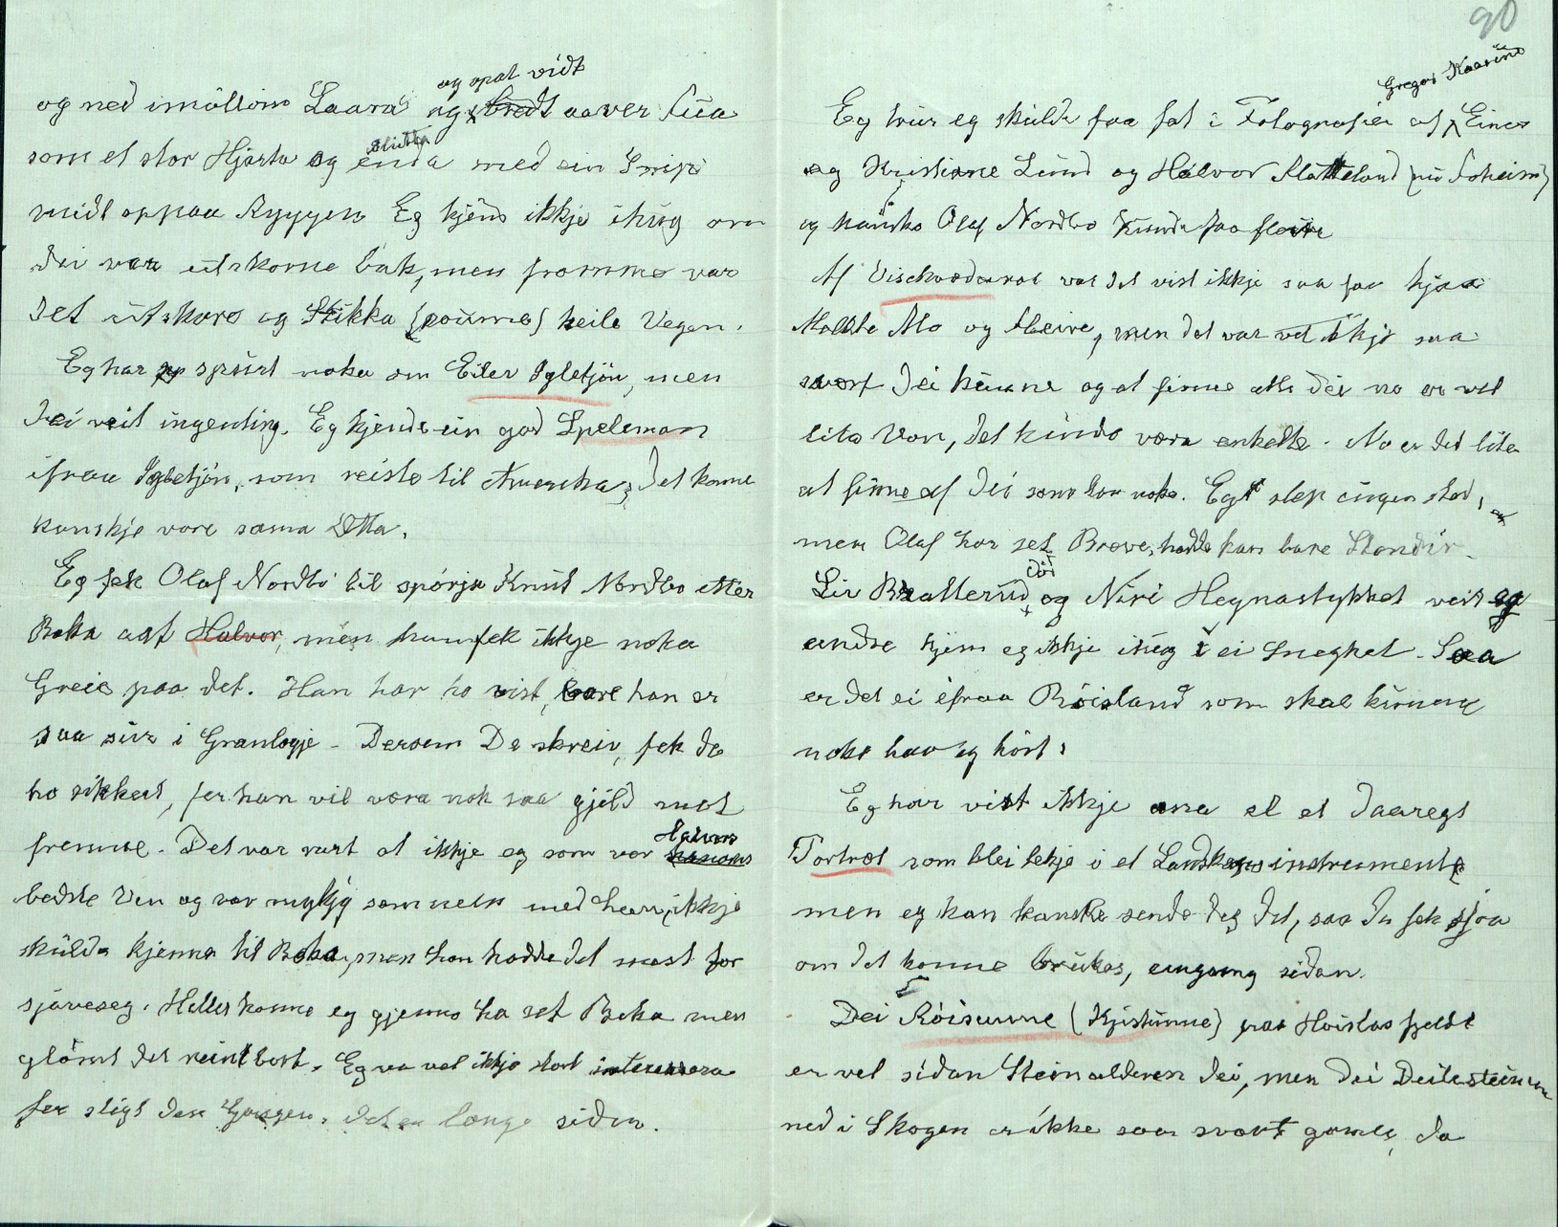 og opat vidt
og ned imöllom Laara og bredt aaver Lua
som et stor Hjarta og slutta enda med ein Snipi
midt oppaa Ryggen Eg kjéns ikkje ihug om
dei var utskorne bak, men framme var
det utskore og Stikka (saume) heile Vegen.
Eg har spurt noko om Eiler Igletjön, men
dei veit ingenting. Eg kjende ein god Speleman
ifraa Igletjön, som reiste til Amerika, det konne
kanskje vore sama Ætta.
Eg fek Olaf Nordbö til spörja Knut Nordbo etter
Boka aat Halvor, men han fek ikkje noko
Greie paa det. Han har ho vist, bare han er
saa sur i Granlogje - Dersom De skreiv, fek de
ho sikkert, fer han vil være nok saa gjild mot
fremme. Det var rart at ikkje eg som var Halvors
bedste Ven og var mykjy sammen med han, ikkje
skulde kjenna til Boka, men han hadde det mest for
sjöveseg. Heller konne eg gjenno ha set Boka men
glömt det reint bort. Eg va vel ikkje stort interessera
fer sligt den Gongen, det er lenge sidan.
90
Gregar Kaasine
Eg trur eg skulde faa fat i Fotografier af Einer
og Kristiane Lund og Halvor Flatteland (nu Soheim)
og kansko Olaf Nordbo kunde faa fleire
Af Visekvædarar var det vist ikkje saa faa hjaa
Moltke Mo og fleire, men det var vel ikkje saa
svært dei kunne og at finne atte dei no er vel
lita Von, det kunde være enkelte. No er det lite
at finne af dei som har noko. Eg slep ingen stad,
men Olaf har set Breve, hadde han bare Stondir.
Liv Bratterud död og Niri Hegnastykket veit eg
andre kjem eg ikkje ihug i ei Snegkel. Saa
er det ei ifraa Röisland som skal kunne
noko har eg hört.
Eg har vist ikkje ana el et daaregt
Portræt som blei tekje i et Landskaps instrument
men eg kan kanske sende deg det, saa du fek sjaa
om det konne brukas, eingang sidan.
Dei Röisunne (Kjistunne) paa Hoislas fjeldt
er vel sidan Steinalderen dei, men dei Deilesteinun
ned i Skogen er ikke saa svært gamle, da